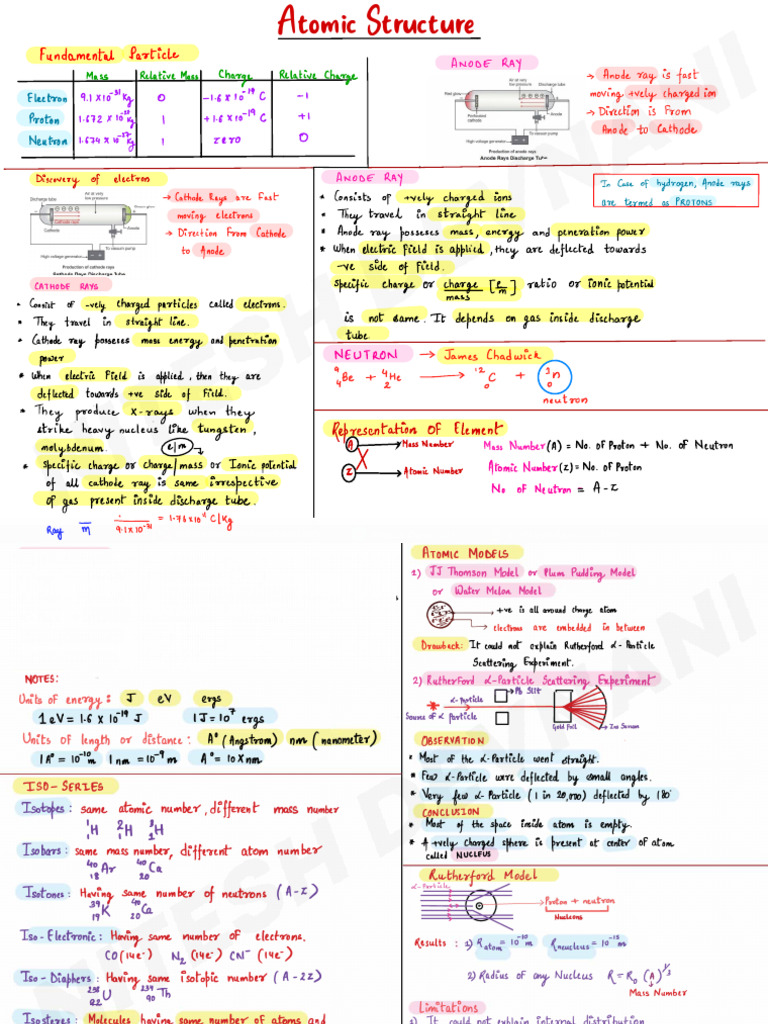 Atomic Structure
Fundamental Particle
Mass Relative Mass Charge Relative Charge
Electron 9.1 X 10⁻³¹ kg 0 -1.6 X 10⁻¹⁹ C -1
Proton 1.672 X 10 kg 1 +1.6 X 10⁻¹⁹ C +1
Neutron 1.674 X 10⁻²⁷ kg 1 zero 0
ANODE RAY
Air at very
low pressure
Discharge tube
Perforated
cathode
Anode
To vacuum pump
High voltage generator
Production of anode rays
Anode Rays Discharge Tube
→ Anode ray is fast
moving +vely charged ion
→ Direction is From
Anode to Cathode
Discovery of electron
Discharge tube
Air at very
low pressure
Cathode rays
Cathode
Anode
To vacuum pump
High voltage generator
Production of cathode rays
Cathode Rays Discharge Tube
→ Cathode Rays are Fast
moving electrons
→ Direction From Cathode
to Anode
CATHODE RAYS
* Consist of -vely charged particles called electrons.
* They travel in straight line.
* Cathode ray posseses mass energy and penetration
power
* When electric Field is applied, then they are
deflected towards +ve side of Field.
* They produce X-rays when they
strike heavy nucleus like tungsten,
molybdenum.
e/m
* Specific charge or charge/mass or Ionic potential
of all cathode ray is same irrespective
of gas present inside discharge tube.
Ray
m
9.1X10⁻³¹ = 1.76 x 10¹¹ C/Kg
ANODE RAY
* Consists of +vely charged ions
* They travel in straight line
* Anode ray posseses mass, energy and peneration power
* When electric field is applied, they are deflected towards
-ve side of Field.
Specific charge or charge/mass [e/m] ratio or ionic potential
is not same. It depends on gas inside discharge
tube
In Case of hydrogen, Anode rays
are termed as PROTONS
NEUTRON → James Chadwick
⁹₄Be + ⁴₂He → ¹²C₀ + ¹₀n
neutron
Representation OF Element
A → Mass Number
X
Z → Atomic Number
Mass Number (A) = No. of Proton + No. of Neutron
Atomic Number (Z) = No. of Proton
No of Neutron = A - Z
NOTES:
Units of energy : J eV ergs
1 eV = 1.6 X 10⁻¹⁹ J 1J = 10⁷ ergs
Units of length or distance : A° (Angstrom) nm (nanometer)
1A° = 10⁻¹⁰ m 1nm = 10⁻⁹ m A° = 10 X nm
ISO-SERIES
Isotopes : same atomic number, different mass number
¹₁H ²₁H ³₁H
Isobars : same mass number, different atom number
⁴⁰₁₈Ar ⁴⁰₂₀Ca
Isotones : Having same number of neutrons (A-Z)
³⁹₁₉K ⁴⁰₂₀Ca
Iso-Electronic : Having same number of electrons.
CO (14e⁻) N₂ (14e⁻) CN⁻ (14e⁻)
Iso-Diaphers : Having same isotopic number (A-2Z)
U Th
₉₀
Isosteres : Molecules having same number of atoms and
ATOMIC MODELS
1) JJ Thomson Model or Plum Pudding Model
or Water Melon Model
→ +ve is all around charge atom
→ electrons are embedded in between
Drawback: It could not explain Rutherford α-Particle
Scattering Experiment.
2) Rutherford α-Particle Scattering Experiment
Pb Slit
α-Particle
Source of α Particle
Gold Foil
Zns Screen
OBSERVATION
* Most of the α-Particle went straight.
* Few α-Particle were deflected by small angles.
* Very few α-Particle (1 in 20,000) deflected by 180°
CONCLUSION
* Most of the space inside atom is empty.
* A +vely charged sphere is present at center of atom
called NUCLEUS
Rutherford Model
α-Particle
Proton + neutron
Nucleons
Results : 1) R atom = 10⁻¹⁰ m R nucleus = 10⁻¹⁵ m
2) Radius of any Nucleus R = R₀ (A)^1/3
Mass Number
Limitations
1) It could not explain internal distribution